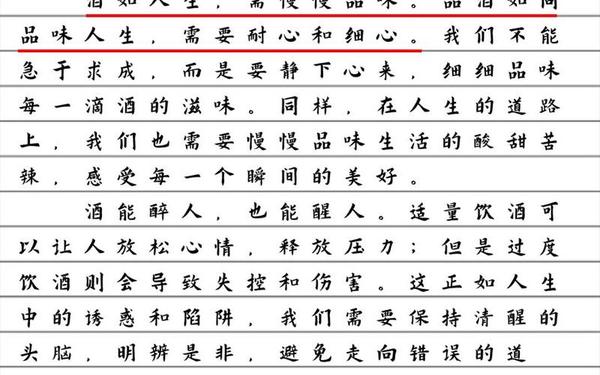 酒如人生，需慢慢品味。品酒如同
品味人生，需要耐心和细心。我们不能
急于求成，而是要静下心来，细细品味
每一滴酒的滋味。同样，在人生的道路
上，我们也需要慢慢品味生活的酸甜苦
辣，感受每一个瞬间的美好。
酒能醉人，也能醒人。适量饮酒可
以让人放松心情，释放压力；但是过度
饮酒则会导致失控和伤害。这正如人生
中的诱惑和陷阱，我们需要保持清醒的
头脑，明辨是非，避免走向错误的道